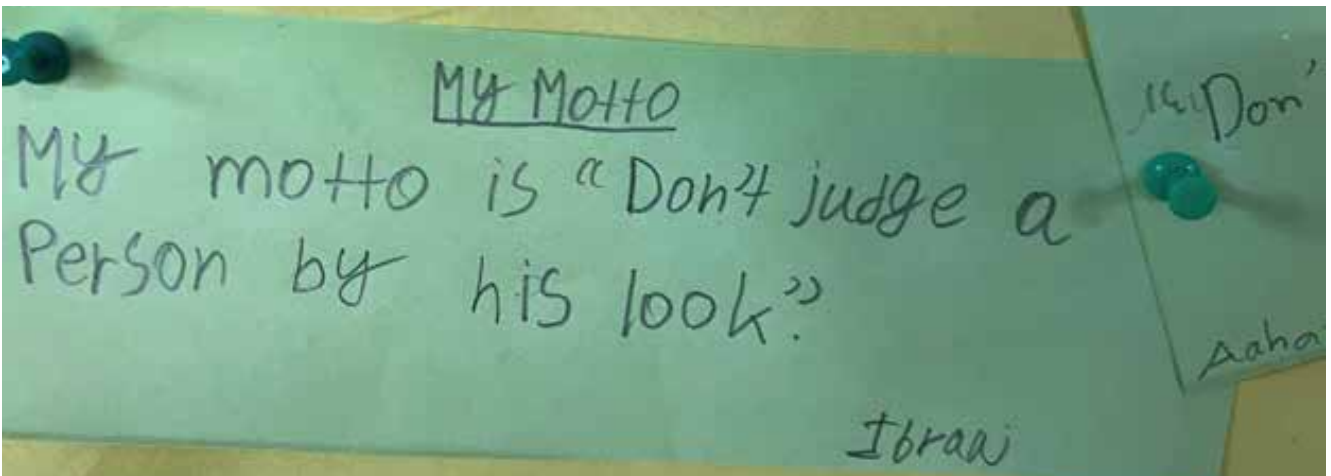 My Motto
My motto is "Don't judge a
Person by his look".
"Don'
Aaha